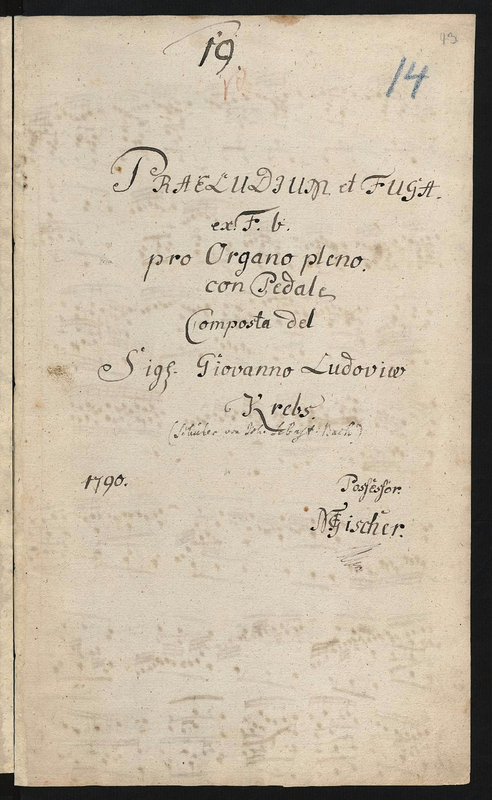 43
19.
14
PRAELUDIUM et FUGA.
ex F. b.
pro Organo pleno.
con Pedale
Composta del
Sigr. Giovanno Ludovico
Krebs.
(Schüler von Joh. Sebast. Bach)
1790.
Possessor.
MGFischer.